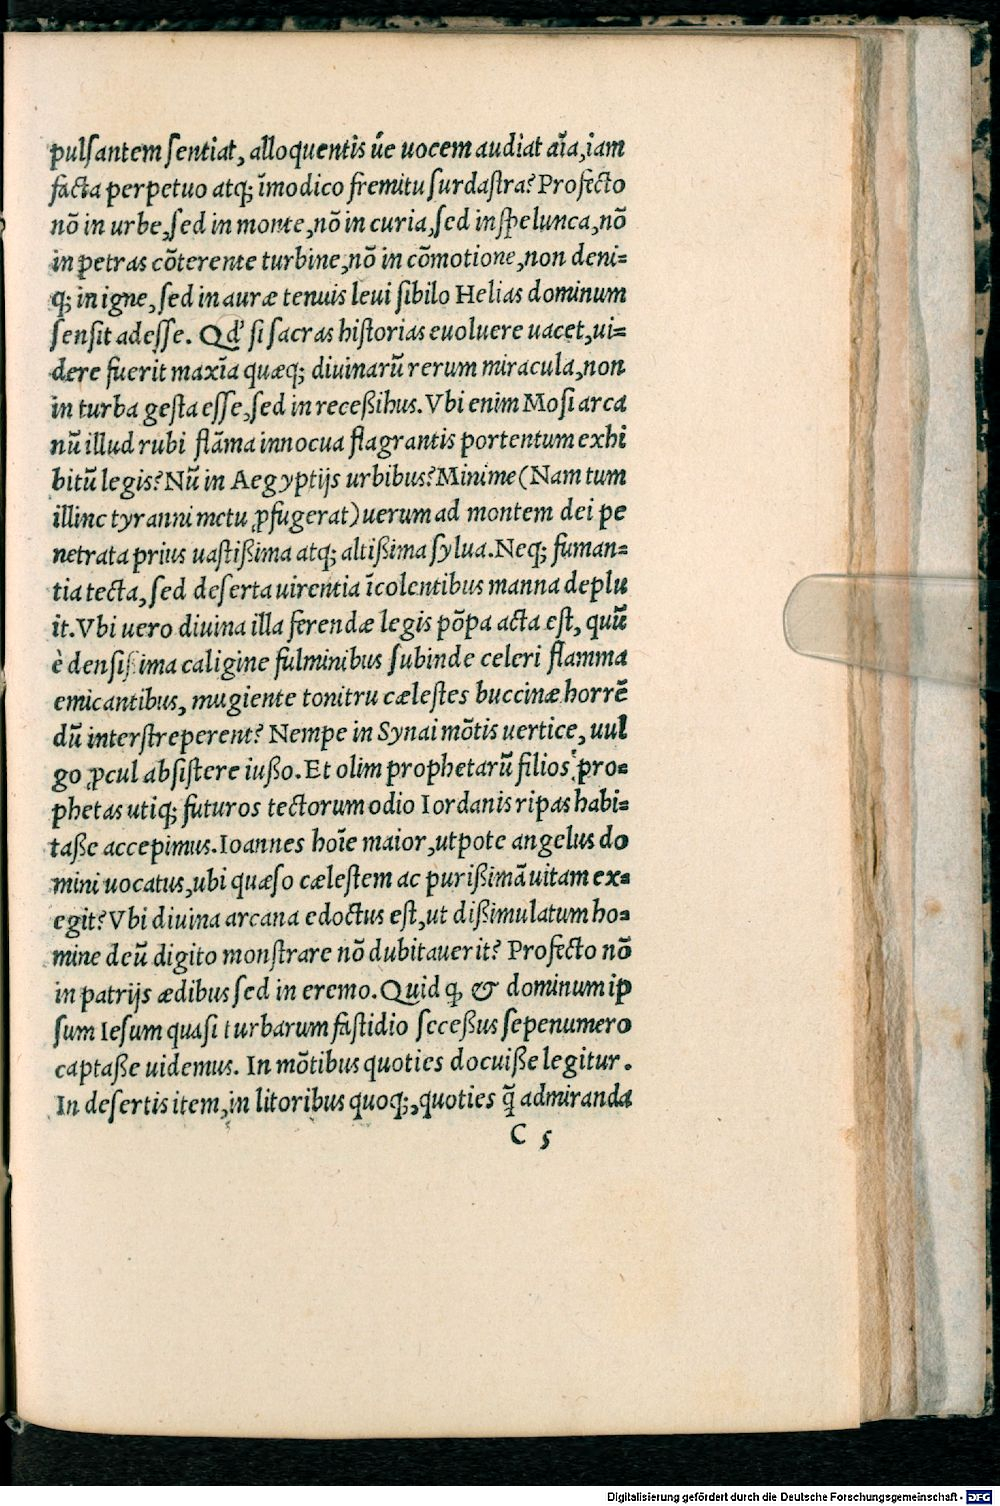 pulſantem ſentiat, alloquentis úe uocem audiat aı̄a, iam
facta perpetuo atq; īmodico fremitu ſurdaſtra? Profecto
nō in urbe, ſed in monte, nō in curia, ſed in ſpelunca, nō
in petras cōterente turbine, nō in cōmotione, non deni=
q; in igne, ſed in auræ tenuis leui ſibilo Helias dominum
ſenſit adeſſe. Qd' ſi ſacras hiſtorias euoluere uacet, ui=
dere fuerit maxīa quæq; diuinarū rerum miracula, non
in turba geſta eſſe, ſed in receßibus. Vbi enim Moſi arca
nū illud rubi flāma innocua flagrantis portentum exhi
bitū legis? Nū in Aegyptijs urbibus? Minime (Nam tum
illinc tyranni metu ꝓfugerat) uerum ad montem dei pe
netrata prius uaſtißima atq; altißima ſylua. Neq; fuman=
tia tecta, ſed deſerta uirentia īcolentibus manna deplu
it. Vbi uero diuina illa ferendæ legis pōpa acta eſt, quū
è denſißima caligine fulminibus ſubinde celeri flamma
emicantibus, mugiente tonitru cæleſtes buccinæ horrē
dū interſtreperent? Nempe in Synai mōtis uertice, uul
go ꝓcul abſiſtere iußo. Et olim prophetarū filios, pro=
phetas utiq; futuros tectorum odio Iordanis ripas habi=
taße accepimus. Ioannes hoı̄e maior, utpote angelus do
mini uocatus, ubi quæſo cæleſtem ac purißimā uitam ex=
egit? Vbi diuina arcana edoctus eſt, ut dißimulatum ho=
mine deū digito monſtrare nō dubitauerit? Profecto nō
in patrijs ædibus ſed in eremo. Quid ꝙ & dominum ip
ſum Ieſum quaſi turbarum faſtidio ſeceßus ſepenumero
captaße uidemus. In mōtibus quoties docuiße legitur.
In deſertis item, in litoribus quoq;, quoties q̄ admiranda
C 5
Digitalisierung gefördert durch die Deutsche Forschungsgemeinschaft - DFG